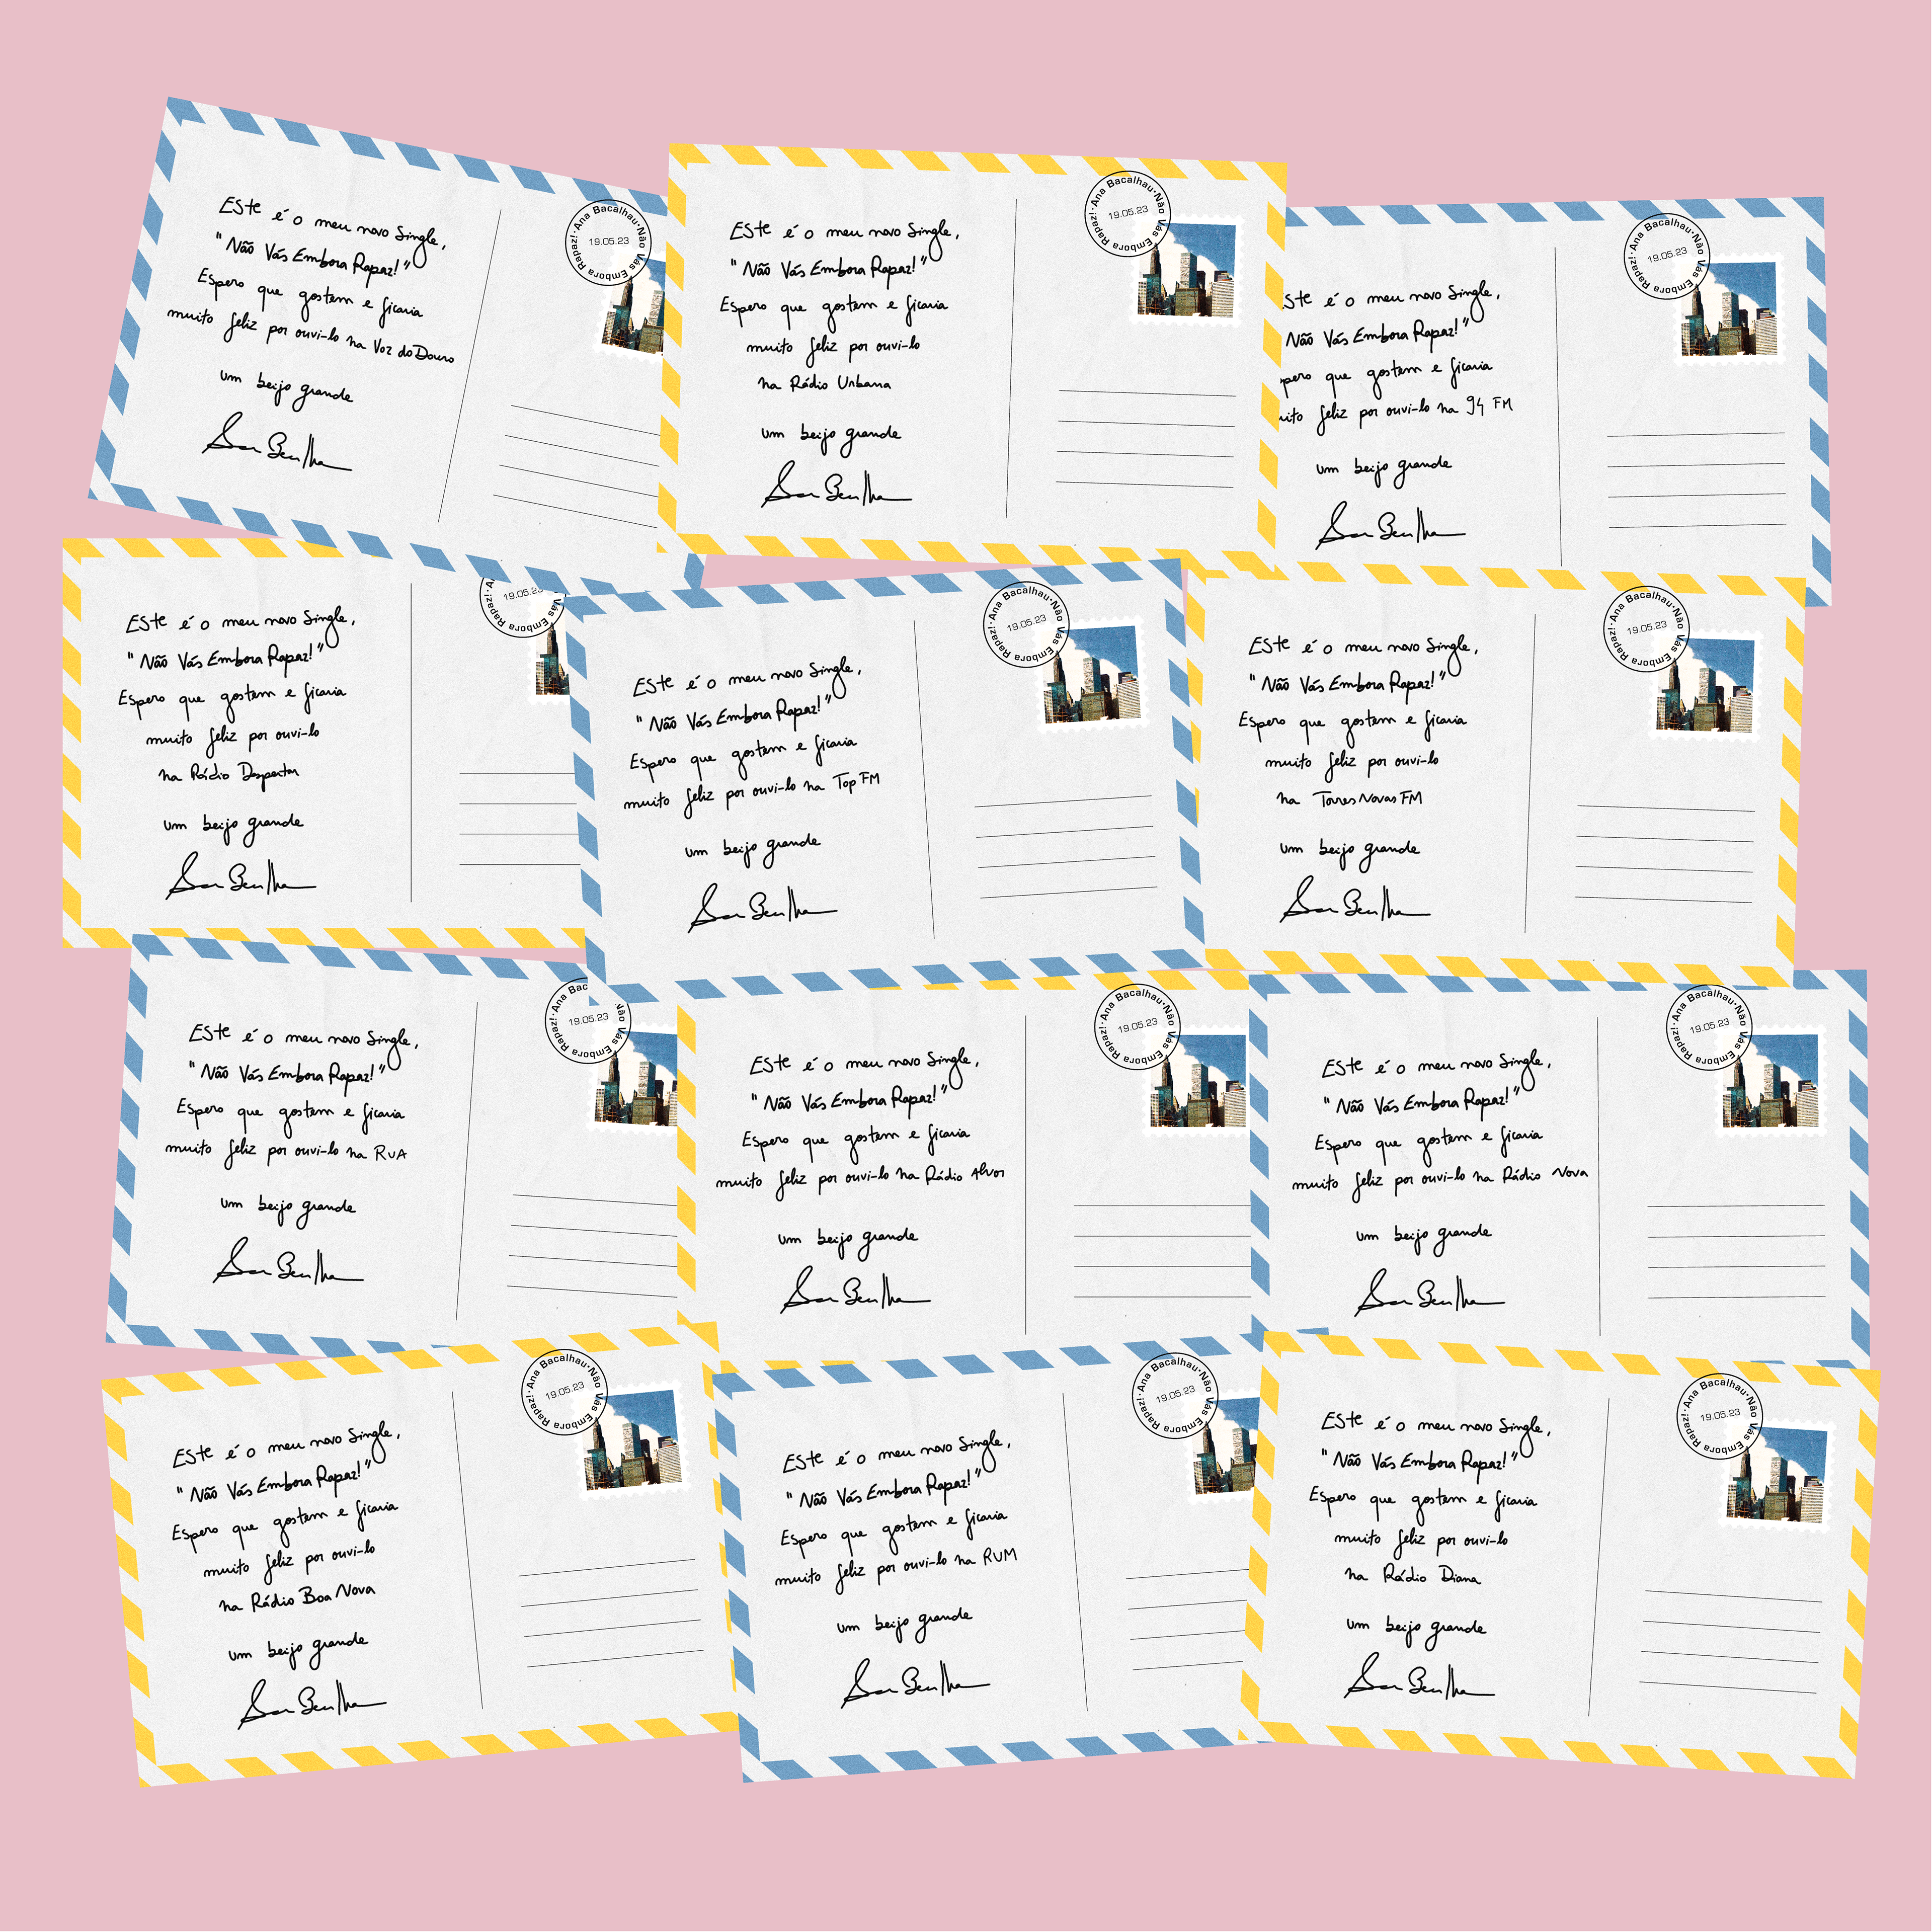 Este é o meu novo Single,
"Não Vás Embora Rapaz!"
Espero que gostem e ficaria
muito feliz por ouvi-lo na Voz do Douro
um beijo grande
Ana Bacalhau · Não Vás Embora Rapaz! ·
19.05.23
Este é o meu novo Single,
"Não Vás Embora Rapaz!"
Espero que gostem e ficaria
muito feliz por ouvi-lo
na Rádio Urbana
um beijo grande
Ana Bacalhau · Não Vás Embora Rapaz! ·
19.05.23
ste é o meu novo Single,
Não Vás Embora Rapaz!"
pero que gostem e ficaria
uito feliz por ouvi-lo na 94 FM
um beijo grande
Ana Bacalhau · Não Vás Embora Rapaz! ·
19.05.23
Este é o meu novo Single,
"Não Vás Embora Rapaz!"
Espero que gostem e ficaria
muito feliz por ouvi-lo
na Rádio Despertar
um beijo grande
Vás Embora Rapaz! · A
19.05.23
Este é o meu novo Single,
"Não Vás Embora Rapaz!"
Espero que gostem e ficaria
muito feliz por ouvi-lo na Top FM
um beijo grande
Ana Bacalhau · Não Vás Embora Rapaz! ·
19.05.23
Este é o meu novo Single,
"Não Vás Embora Rapaz!"
Espero que gostem e ficaria
muito feliz por ouvi-lo
na Torres Novas FM
um beijo grande
Ana Bacalhau · Não Vás Embora Rapaz! ·
19.05.23
Este é o meu novo Single,
"Não Vás Embora Rapaz!"
Espero que gostem e ficaria
muito feliz por ouvi-lo na RUA
um beijo grande
Ana Bac Vás Embora Rapaz! ·
19.05.23
Este é o meu novo Single,
"Não Vás Embora Rapaz!"
Espero que gostem e ficaria
muito feliz por ouvi-lo na Rádio Alvor
um beijo grande
Ana Bacalhau · Não Vás Embora Rapaz! ·
19.05.23
Este é o meu novo Single,
"Não Vás Embora Rapaz!"
Espero que gostem e ficaria
muito feliz por ouvi-lo na Rádio Nova
um beijo grande
Ana Bacalhau · Não Vás Embora Rapaz! ·
19.05.23
Este é o meu novo Single,
"Não Vás Embora Rapaz!"
Espero que gostem e ficaria
muito feliz por ouvi-lo
na Rádio Boa Nova
um beijo grande
Ana Bacalhau · Não Vás Embora Rapaz! ·
19.05.23
Este é o meu novo Single,
"Não Vás Embora Rapaz!"
Espero que gostem e ficaria
muito feliz por ouvi-lo na RUM
um beijo grande
Ana Bacalhau · Não Vás Embora Rapaz! ·
19.05.23
Este é o meu novo Single,
"Não Vás Embora Rapaz!"
Espero que gostem e ficaria
muito feliz por ouvi-lo
na Rádio Diana
um beijo grande
Ana Bacalhau · Não Vás Embora Rapaz! ·
19.05.23